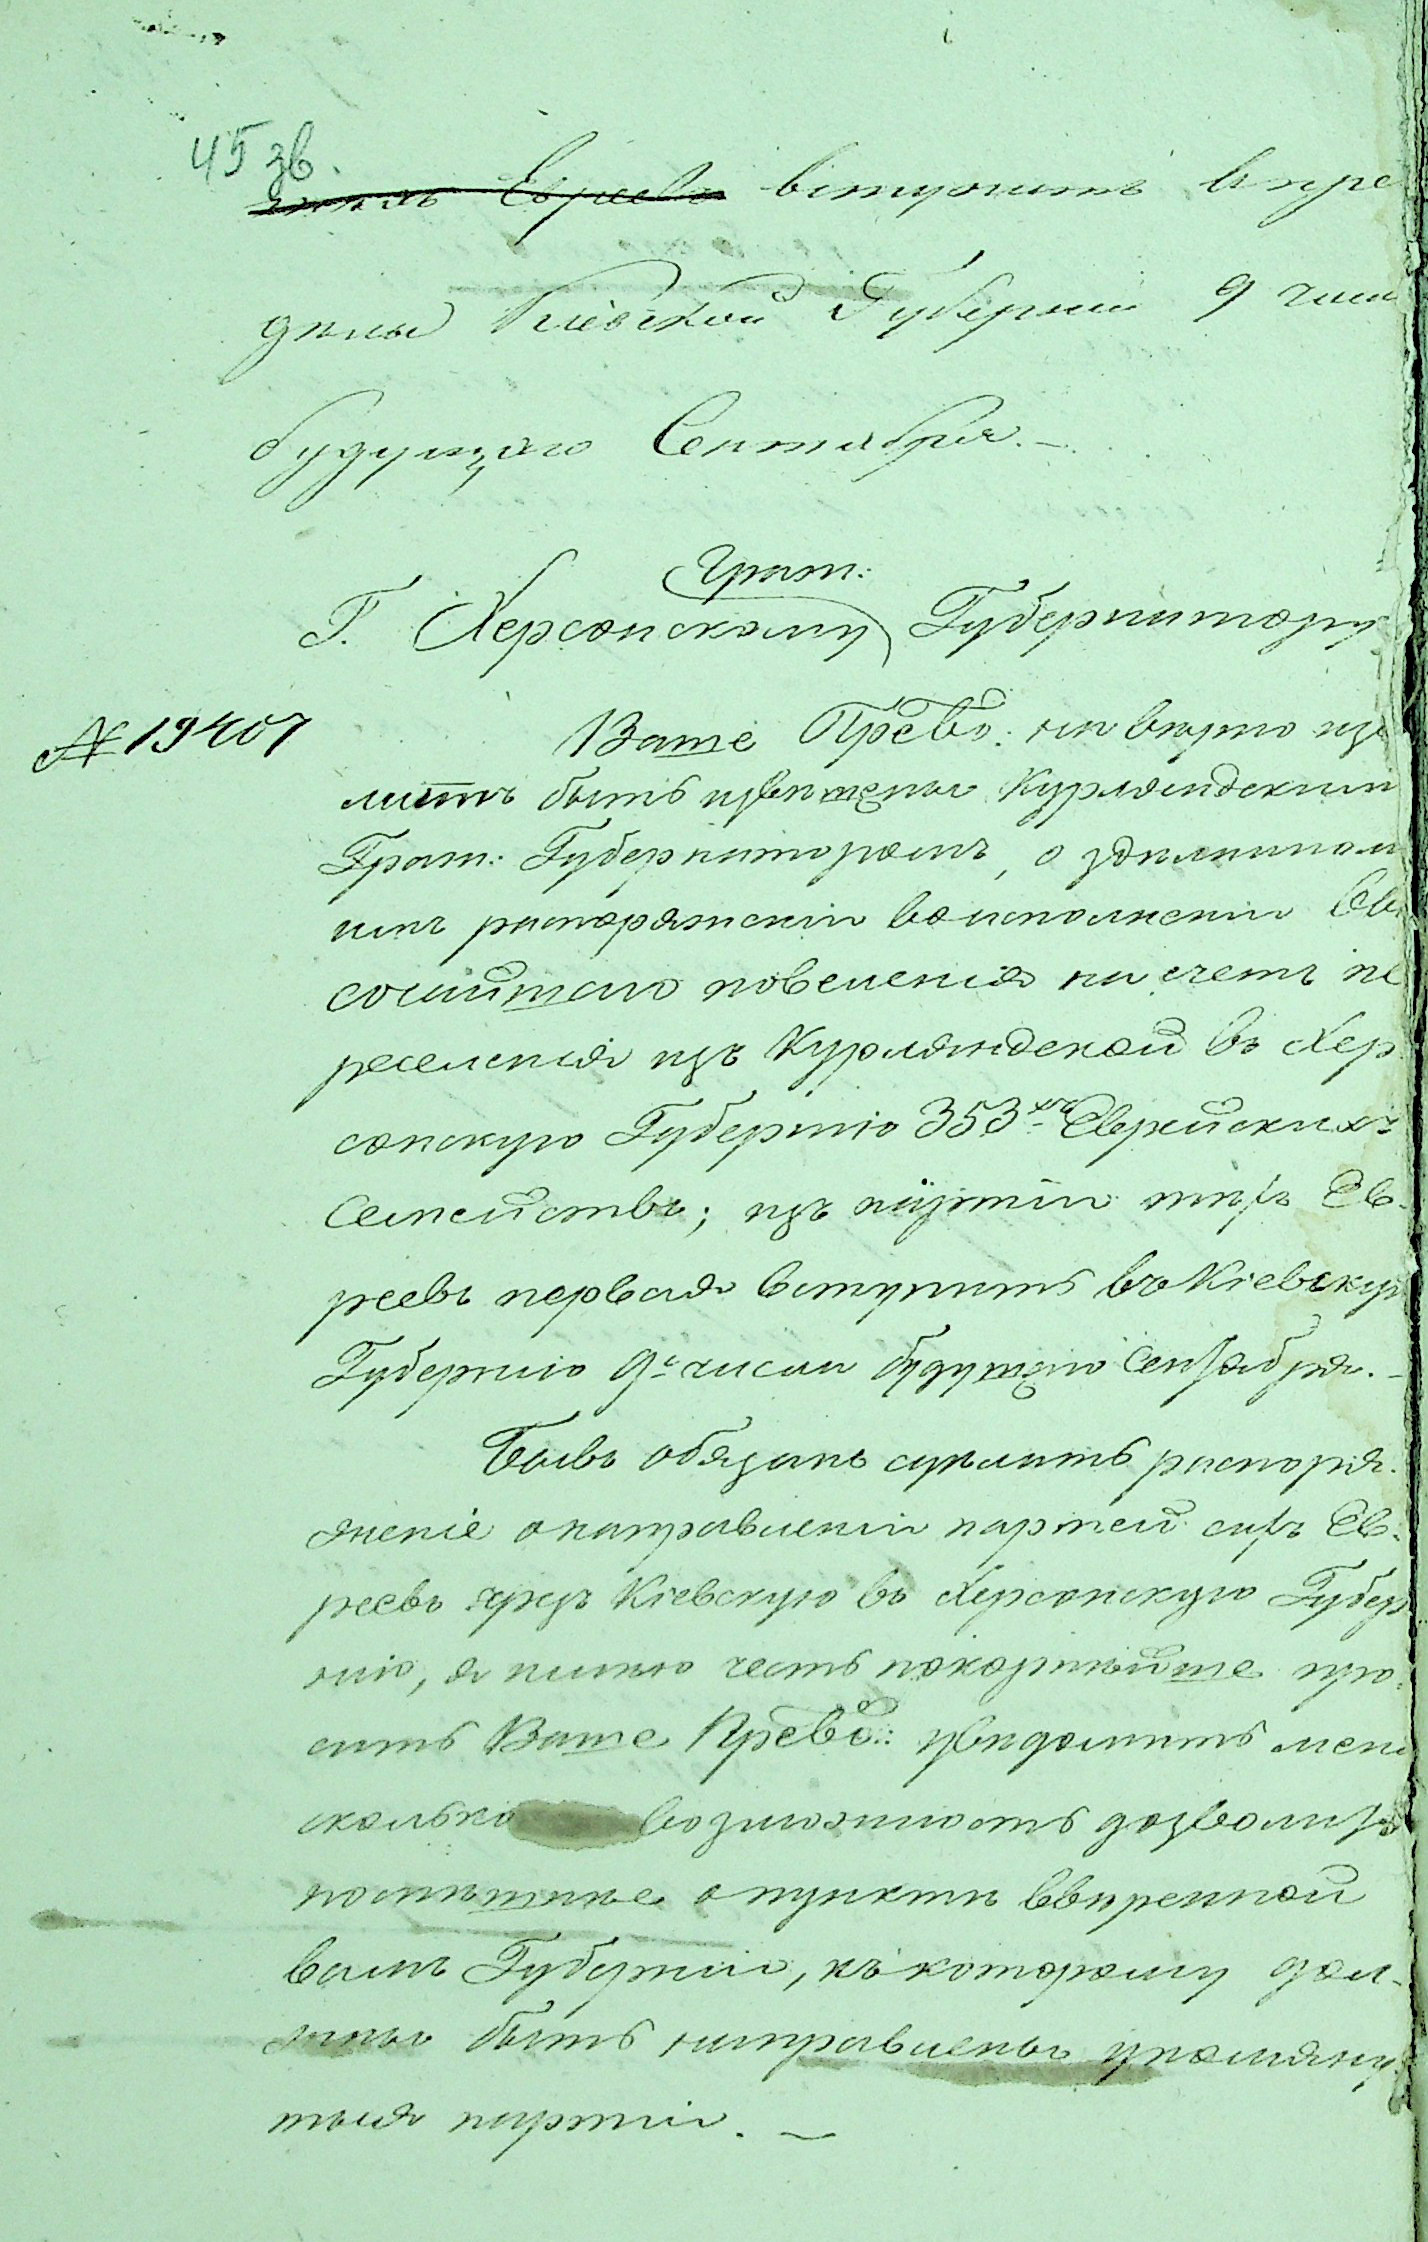 45 зв.
Евреевъ вступитъ въ пре
дѣлы Кіевской Губерніи 9 числ
будущаго Сентября. —
Граж:
Г. Херсонскому Губернатору
№ 19407
Ваше Прево: навѣрно из
лить быть извѣщены Курляндским
Граж: Губернаторомъ, о здѣланном
имъ распоряженіи во исполненіи Вы
сочайшаго повеленія на счетъ пе
реселенія изъ Курляндской въ Хер
сонскую Губернію 353хъ Еврейскихъ
Семействъ; изъ партіи тѣхъ Ев-
реевъ первая вступитъ въ Кіевскую
Губернію 9го числа будущаго Сентября. —
Бывъ обязанъ сдѣлать распоря-
женіе о направленіи партей сихъ Ев-
реевъ чрезъ Кіевскую въ Херсонскую Губер
нію, я имѣю честь покорнѣйше про-
сить Ваше Прево: увѣдомить меня
сколько возможность дозволитъ
поспѣшнѣе о пунктѣ ввѣренной
вамъ Губерніи, къ которому дол-
жны быть направлены упомяну
тыя партіи. —